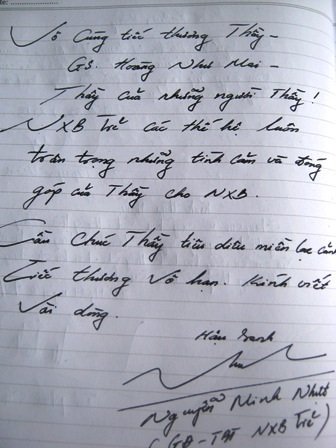 Vô Cùng tiếc thương Thầy -
GS. Hoàng Như Mai -
Thầy của những người Thầy!
NXB Trẻ các thế hệ luôn
trân trọng những tình cảm và đóng
góp của Thầy cho NXB.
Cầu Chúc Thầy tiêu diêu miền lạc cảnh
Tiếc thương vô hạn. Kính viết
vài dòng.
Nguyễn Minh Nhựt
(GĐ - TBT NXB Trẻ)